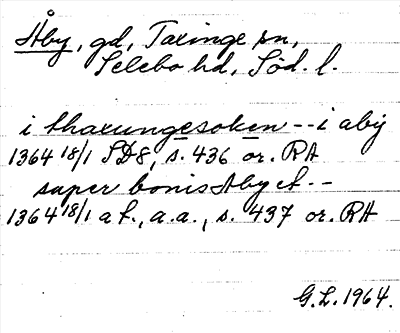 Åby, gd, Taxinge sn,
Selebo hd, Söd. l.
i thaxungesoken -- i aby
1364 18/1 SD8, s. 436 or. RA
super bonis Aby et. --
1364 18/1 a t., a.a., s. 437 or. RA
G.L. 1964.